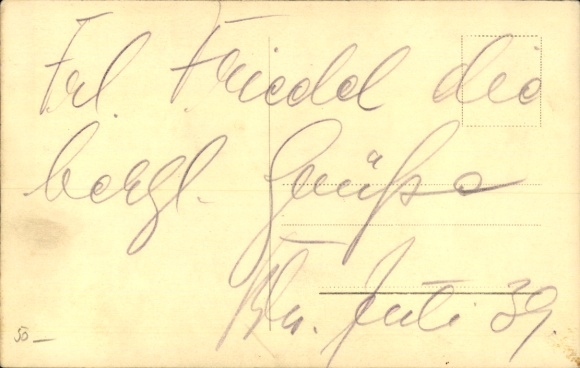 Frl. Friedel die
herzl. Grüße
Bln. Juli 39.
50 —